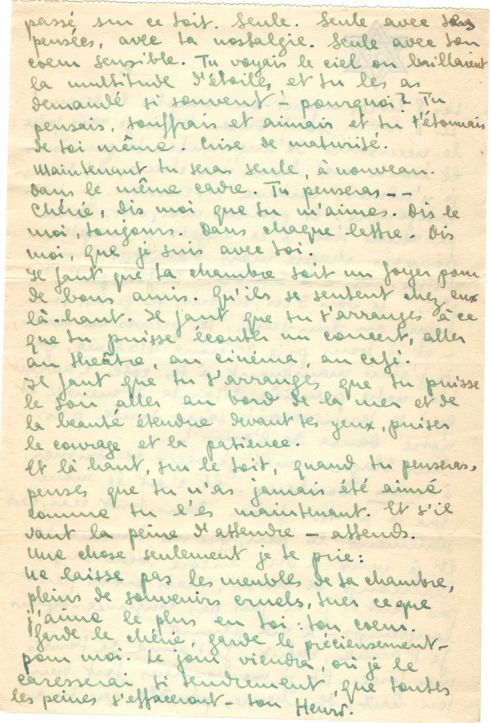 passé sur ce toit. Seule. Seule avec tes
pensées, avec ta nostalgie. Seule avec ton
coeur sensible. Tu voyais le ciel ou brillavent
la multitude d'étoiles, et tu les as
demandé si souvent - pourquoi? Tu
pensais, souffrais et aimais et tu t'étonnais
de toi même. Crise de maturité.
Maintenant tu seras seule, à nouveau.
Dans le même cadre. Tu penseras --
Chérie, dis moi que tu m'aimes. Dis le
moi, toujours. Dans chaque lettre. Dis
moi, que je suis avec toi.
Il faut que ta chambre soit un foyer pour
de bons amis. Qu'ils se sentent chez eux
là-haut. Il faut que tu t'arranges à ce
que tu puisse écouter un concert, aller
au théâtre, au cinéma, au café.
Il faut que tu t'arranges que tu puisse
le soir aller au bord de la mer et de
la beauté étendue devant tes yeux, puiser
le courage et la patience.
Et là haut, sur le toit, quand tu penseras,
penses que tu n'as jamais été aimé
comme tu l'es maintenant. Et s'il
vaut la peine d'attendre - attends.
Une chose seulement je te prie:
Ne laisse pas les meubles de ta chambre,
pleins de souvenirs cruels, tuer ce que
j'aime le plus en toi: ton coeur.
Garde le chérie, garde le précieusement -
pour moi. Le jour viendra, où je le
caresserai si tendrement que toutes
les peines s'effaceront - ton Henri.